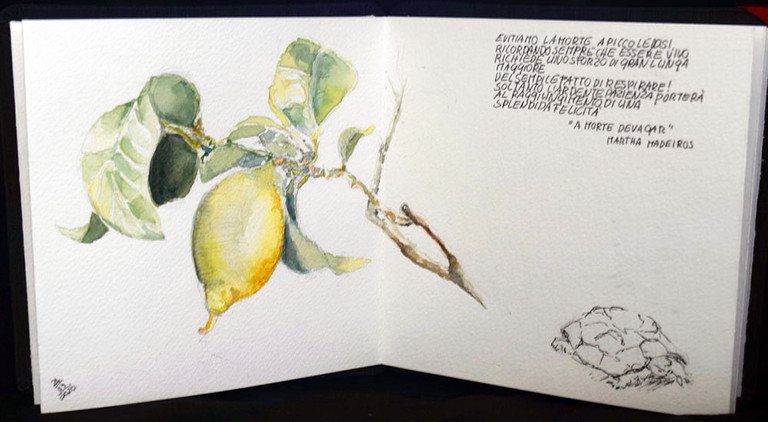 EVITIAMO LA MORTE A PICCOLE DOSI
RICORDANDO SEMPRE CHE ESSERE VIVO
RICHIEDE UNO SFORZO DI GRAN LUNGA
MAGGIORE
DEL SEMPLICE FATTO DI RESPIRARE!
SOLTANTO L'ARDENTE PAZIENZA PORTERÀ
AL RAGGIUNGIMENTO DI UNA
SPLENDIDA FELICITÀ
"A MORTE DEVAGAR"
MARTHA MADEIROS